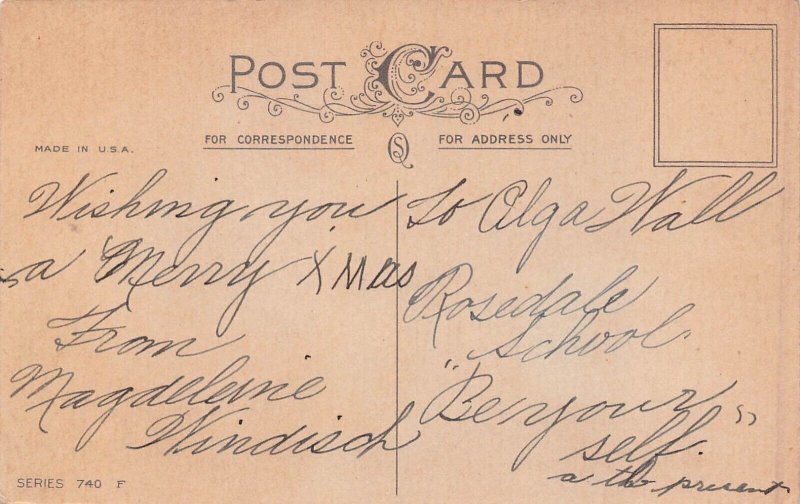 POST CARD
FOR CORRESPONDENCE
FOR ADDRESS ONLY
MADE IN U.S.A.
Wishing you
a Merry XMas
From
Magdeleine
Windisch
To Olga Wall
Rosedale
School.
"Be your"
self.
a the present
SERIES 740 F